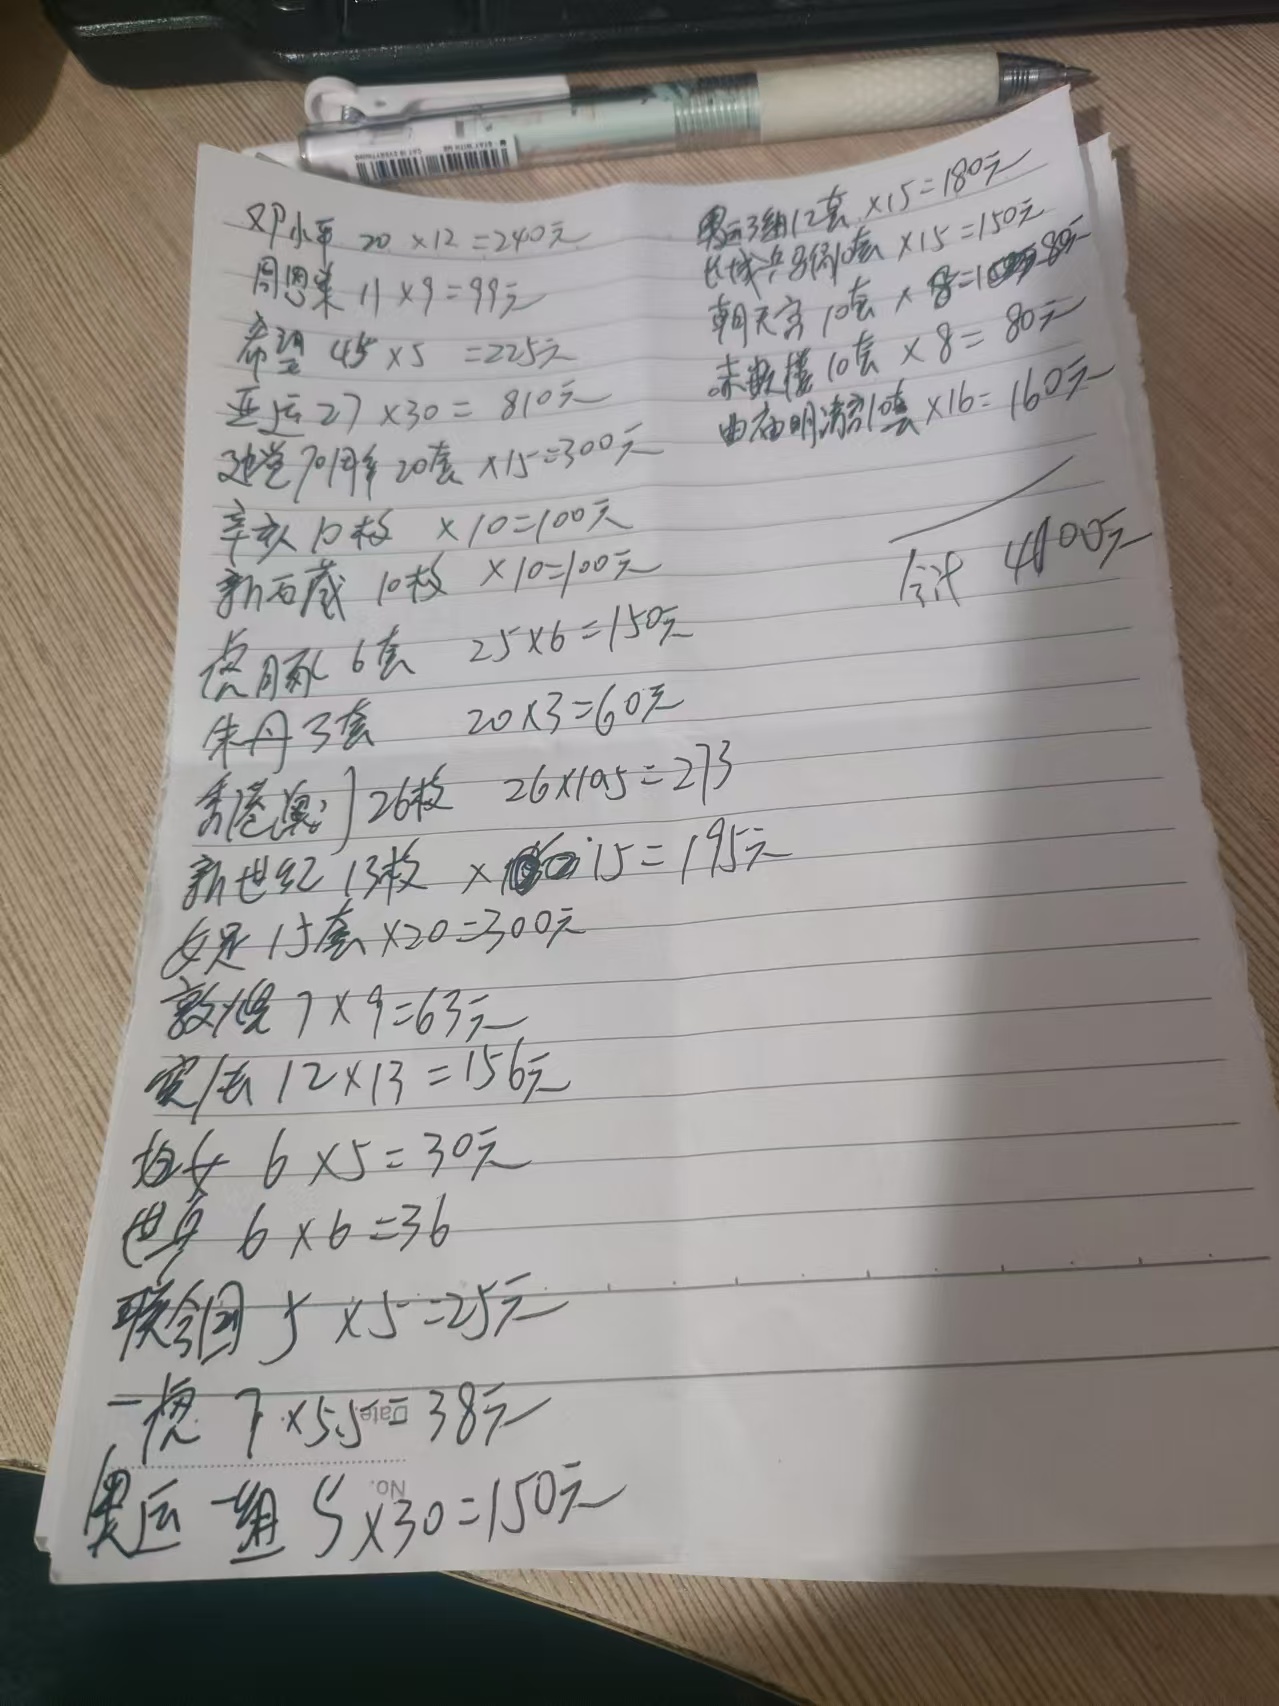 邓小平 20 × 12 = 240元
周恩来 11 × 9 = 99元
希望 45 × 5 = 225元
亚运 27 × 30 = 810元
建党70周年 20套 × 15 = 300元
辛亥 10枚 × 10 = 100元
新西藏 10枚 × 10 = 100元
6套 25×6=150元
朱丹 3套 20×3=60元
香港澳门 26枚 26×10.5=273
新世纪 13枚 × 15 = 195元
女足 15套 × 20 = 300元
敦煌 7 × 9 = 63元
宪法 12 × 13 = 156元
妇女 6 × 5 = 30元
6 × 6 = 36
联合国 5 × 5 = 25元
7 × 5.5 = 38元
奥运 一组 5 × 30 = 150元
奥运3组12套 × 15 = 180元
长城兵马俑10套 × 15 = 150元
朝天宫 10套 × 8 = 80元
赤嵌楼 10套 × 8 = 80元
曲庙明清宫10套 × 16 = 160元
合计 4100元
Date.
No.
STAY WITH ME
CAT IS EVERYTHING